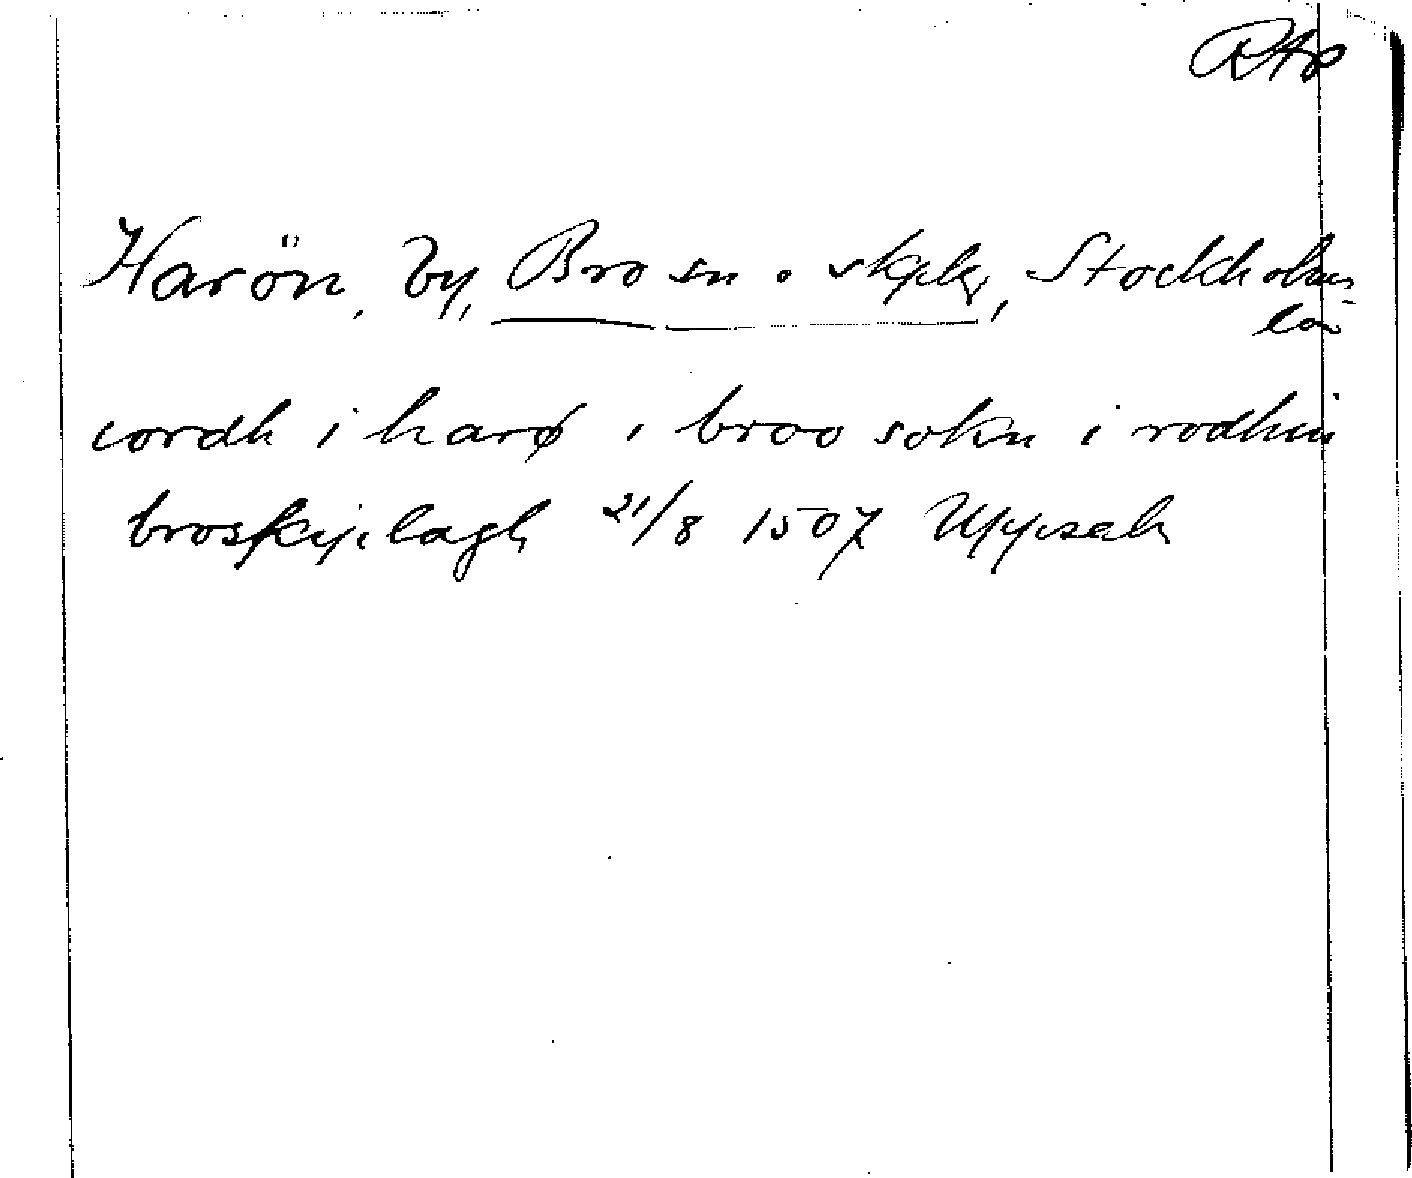 RAp
Harön, by, Bro sn o skplg, Stockholms
län
iordh i harø i broo sokn i rodhin
broskiplagh 21/8 1507 Uppsala